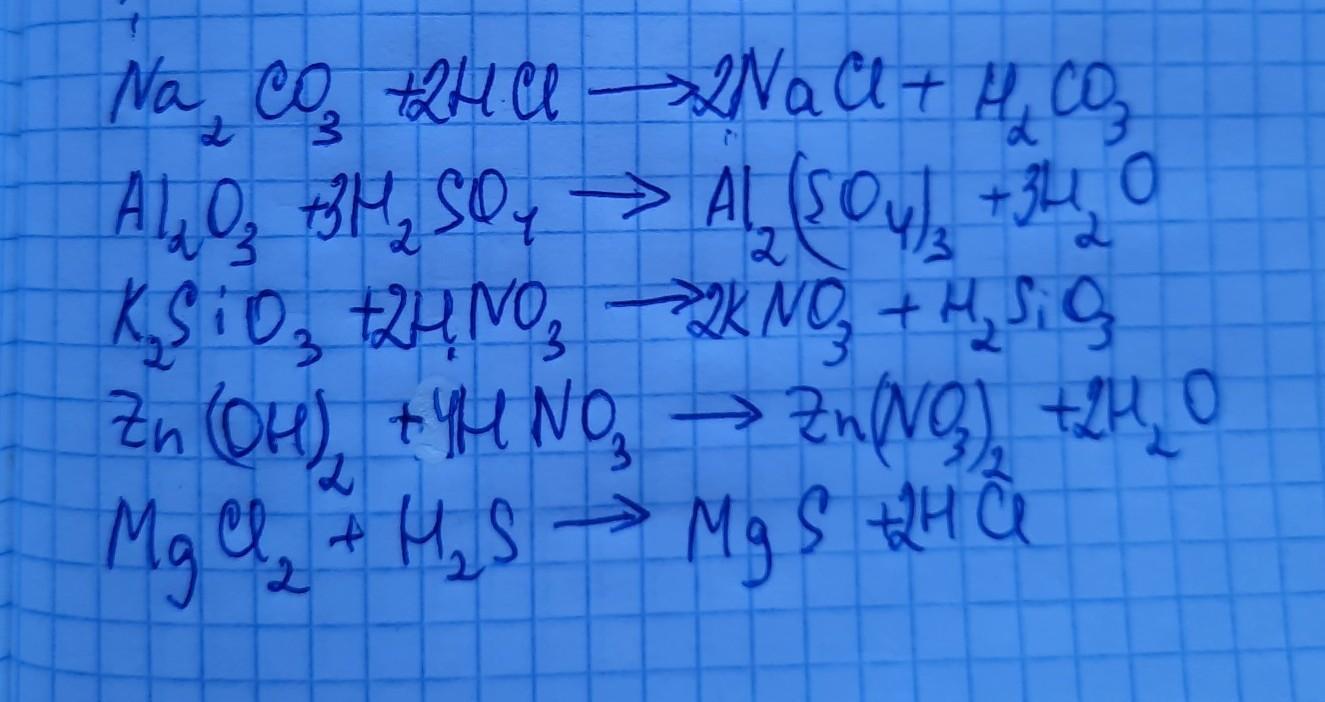 Na₂CO₃ +2HCl ⟶ 2NaCl + H₂CO₃
Al₂O₃ +3H₂SO₄ ⟶ Al₂(SO₄)₃ +3H₂O
K₂SiO₃ +2HNO₃ ⟶ 2KNO₃ + H₂SiO₃
Zn(OH)₂ +4HNO₃ ⟶ Zn(NO₃)₂ +2H₂O
MgCl₂ + H₂S ⟶ MgS +2HCl